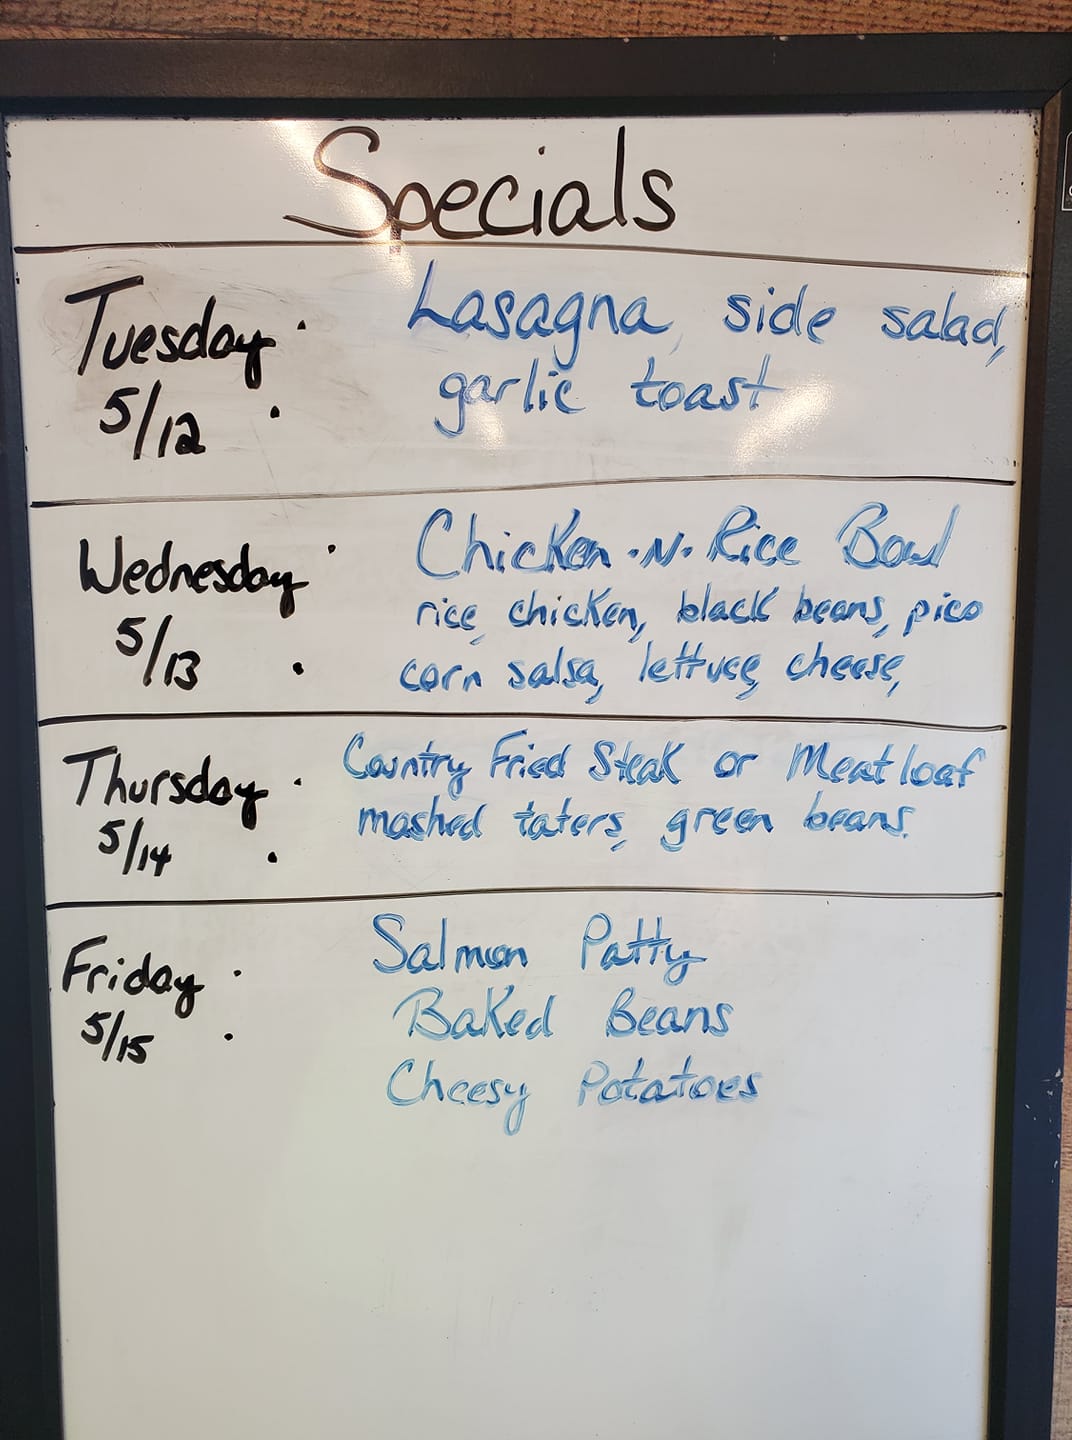 Specials
Tuesday :
5/12
Lasagna, side salad,
garlic toast
Wednesday :
5/13
Chicken -N- Rice Bowl
rice, chicken, black beans, pico
corn salsa, lettuce, cheese,
Thursday :
5/14
Country Fried Steak or Meatloaf
mashed taters, green beans.
Friday :
5/15
Salmon Patty
Baked Beans
Cheesy Potatoes